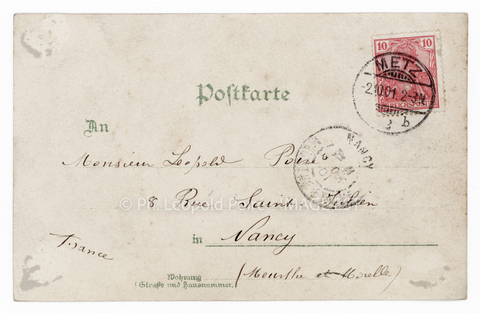 10 10
METZ
-2.10.01. 2-3N.
b
Postkarte
NANCY
An
Monsieur Léopold Poiré
8 Rue Saint Julien
in Nancy
France
(Meurthe et Moselle)
Wohnung
(Straße und Hausnummer)